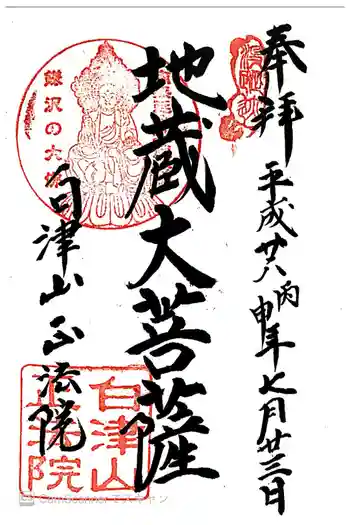 奉拝
平成廿八丙申年七月廿三日
地蔵大菩薩
白津山正法院
鎌沢の大
白津山
正法院
CamScanner でスキャン